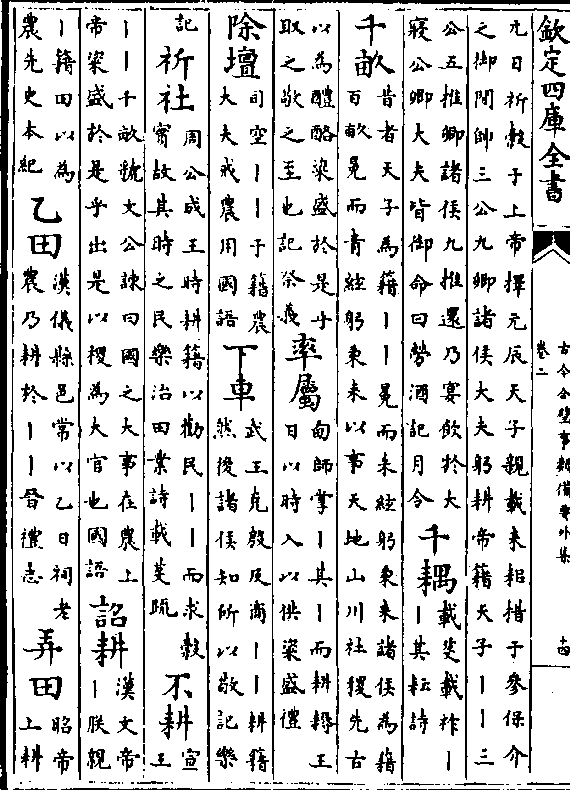 欽定四庫全書
古今合璧事類備要外集
卷二
十四
元日祈穀于上帝擇元辰天子親載耒耜措于參保介
之御閒帥三公九卿諸侯大夫躬耕帝籍天子丨丨三
公五推卿諸侯九推還乃宴飲於大
寢公卿大夫皆御命曰勞酒記月令
千耦
載芟載柞丨
丨其耘詩
千畝
昔者天子為籍丨丨冕而朱紘躬秉耒諸侯為籍
百畝冕而青紘躬秉耒以事天地山川社稷先古
以為醴酪粢盛於是乎
取之敬之至也記祭義
率屬
甸師掌丨其丨而耕耨王
曰以時入以供粢盛禮
除壇
司空丨丨于籍農
大夫戒農用國語
下車
武王克殷反商丨丨耕籍
然後諸侯知所以敬記樂
記
祈社
周公成王時耕籍以勸民丨丨而求穀
實故其時之民樂治田業詩載芟疏
不耕
宣
王
丨丨千畝虢文公諫曰國之大事在農上
帝粢盛於是乎出是以稷為大官也國語
詔耕
漢文帝
丨朕親
丨籍田以為
農先史本紀
乙田
漢儀縣邑常以乙日祠老
農乃耕於丨丨晉禮志
弄田
昭帝
上耕